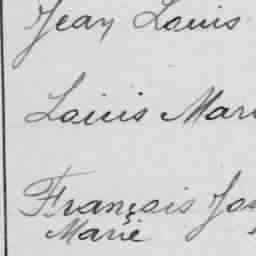 Jean Louis
Louis Mari
François Jos
Marie